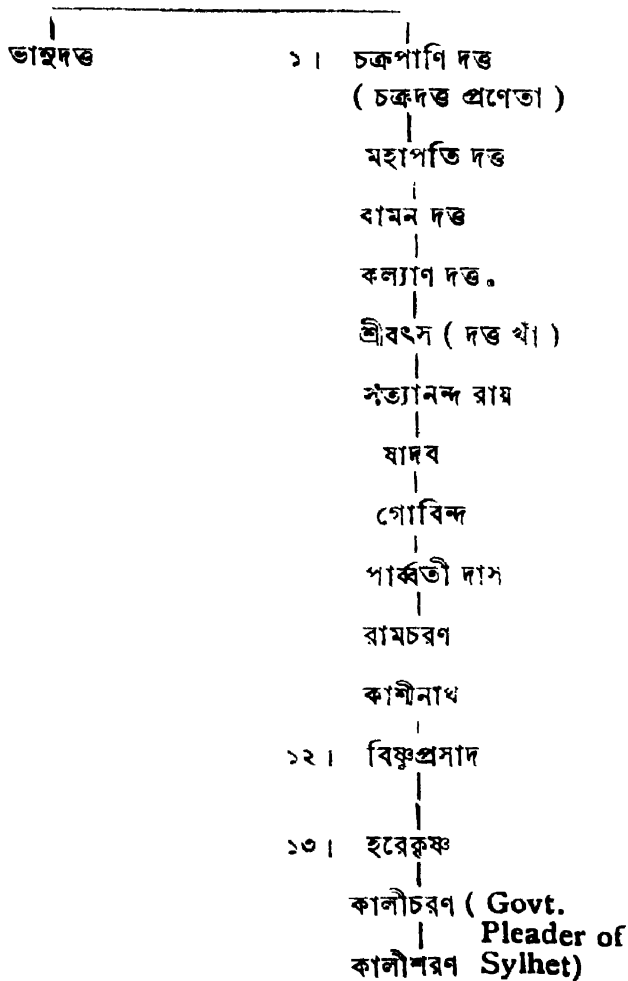 ভানুদত্ত
১। চক্রপাণি দত্ত
( চক্রদত্ত প্রণেতা )
মহাপতি দত্ত
বামন দত্ত
কল্যাণ দত্ত.
শ্রীবৎস ( দত্ত খাঁ )
সত্যানন্দ রায়
যাদব
গোবিন্দ
পার্ব্বতী দাস
রামচরণ
কাশীনাথ
১২। বিষ্ণুপ্রসাদ
১৩। হরেকৃষ্ণ
কালীচরণ ( Govt.
Pleader of
কালীশরণ Sylhet)